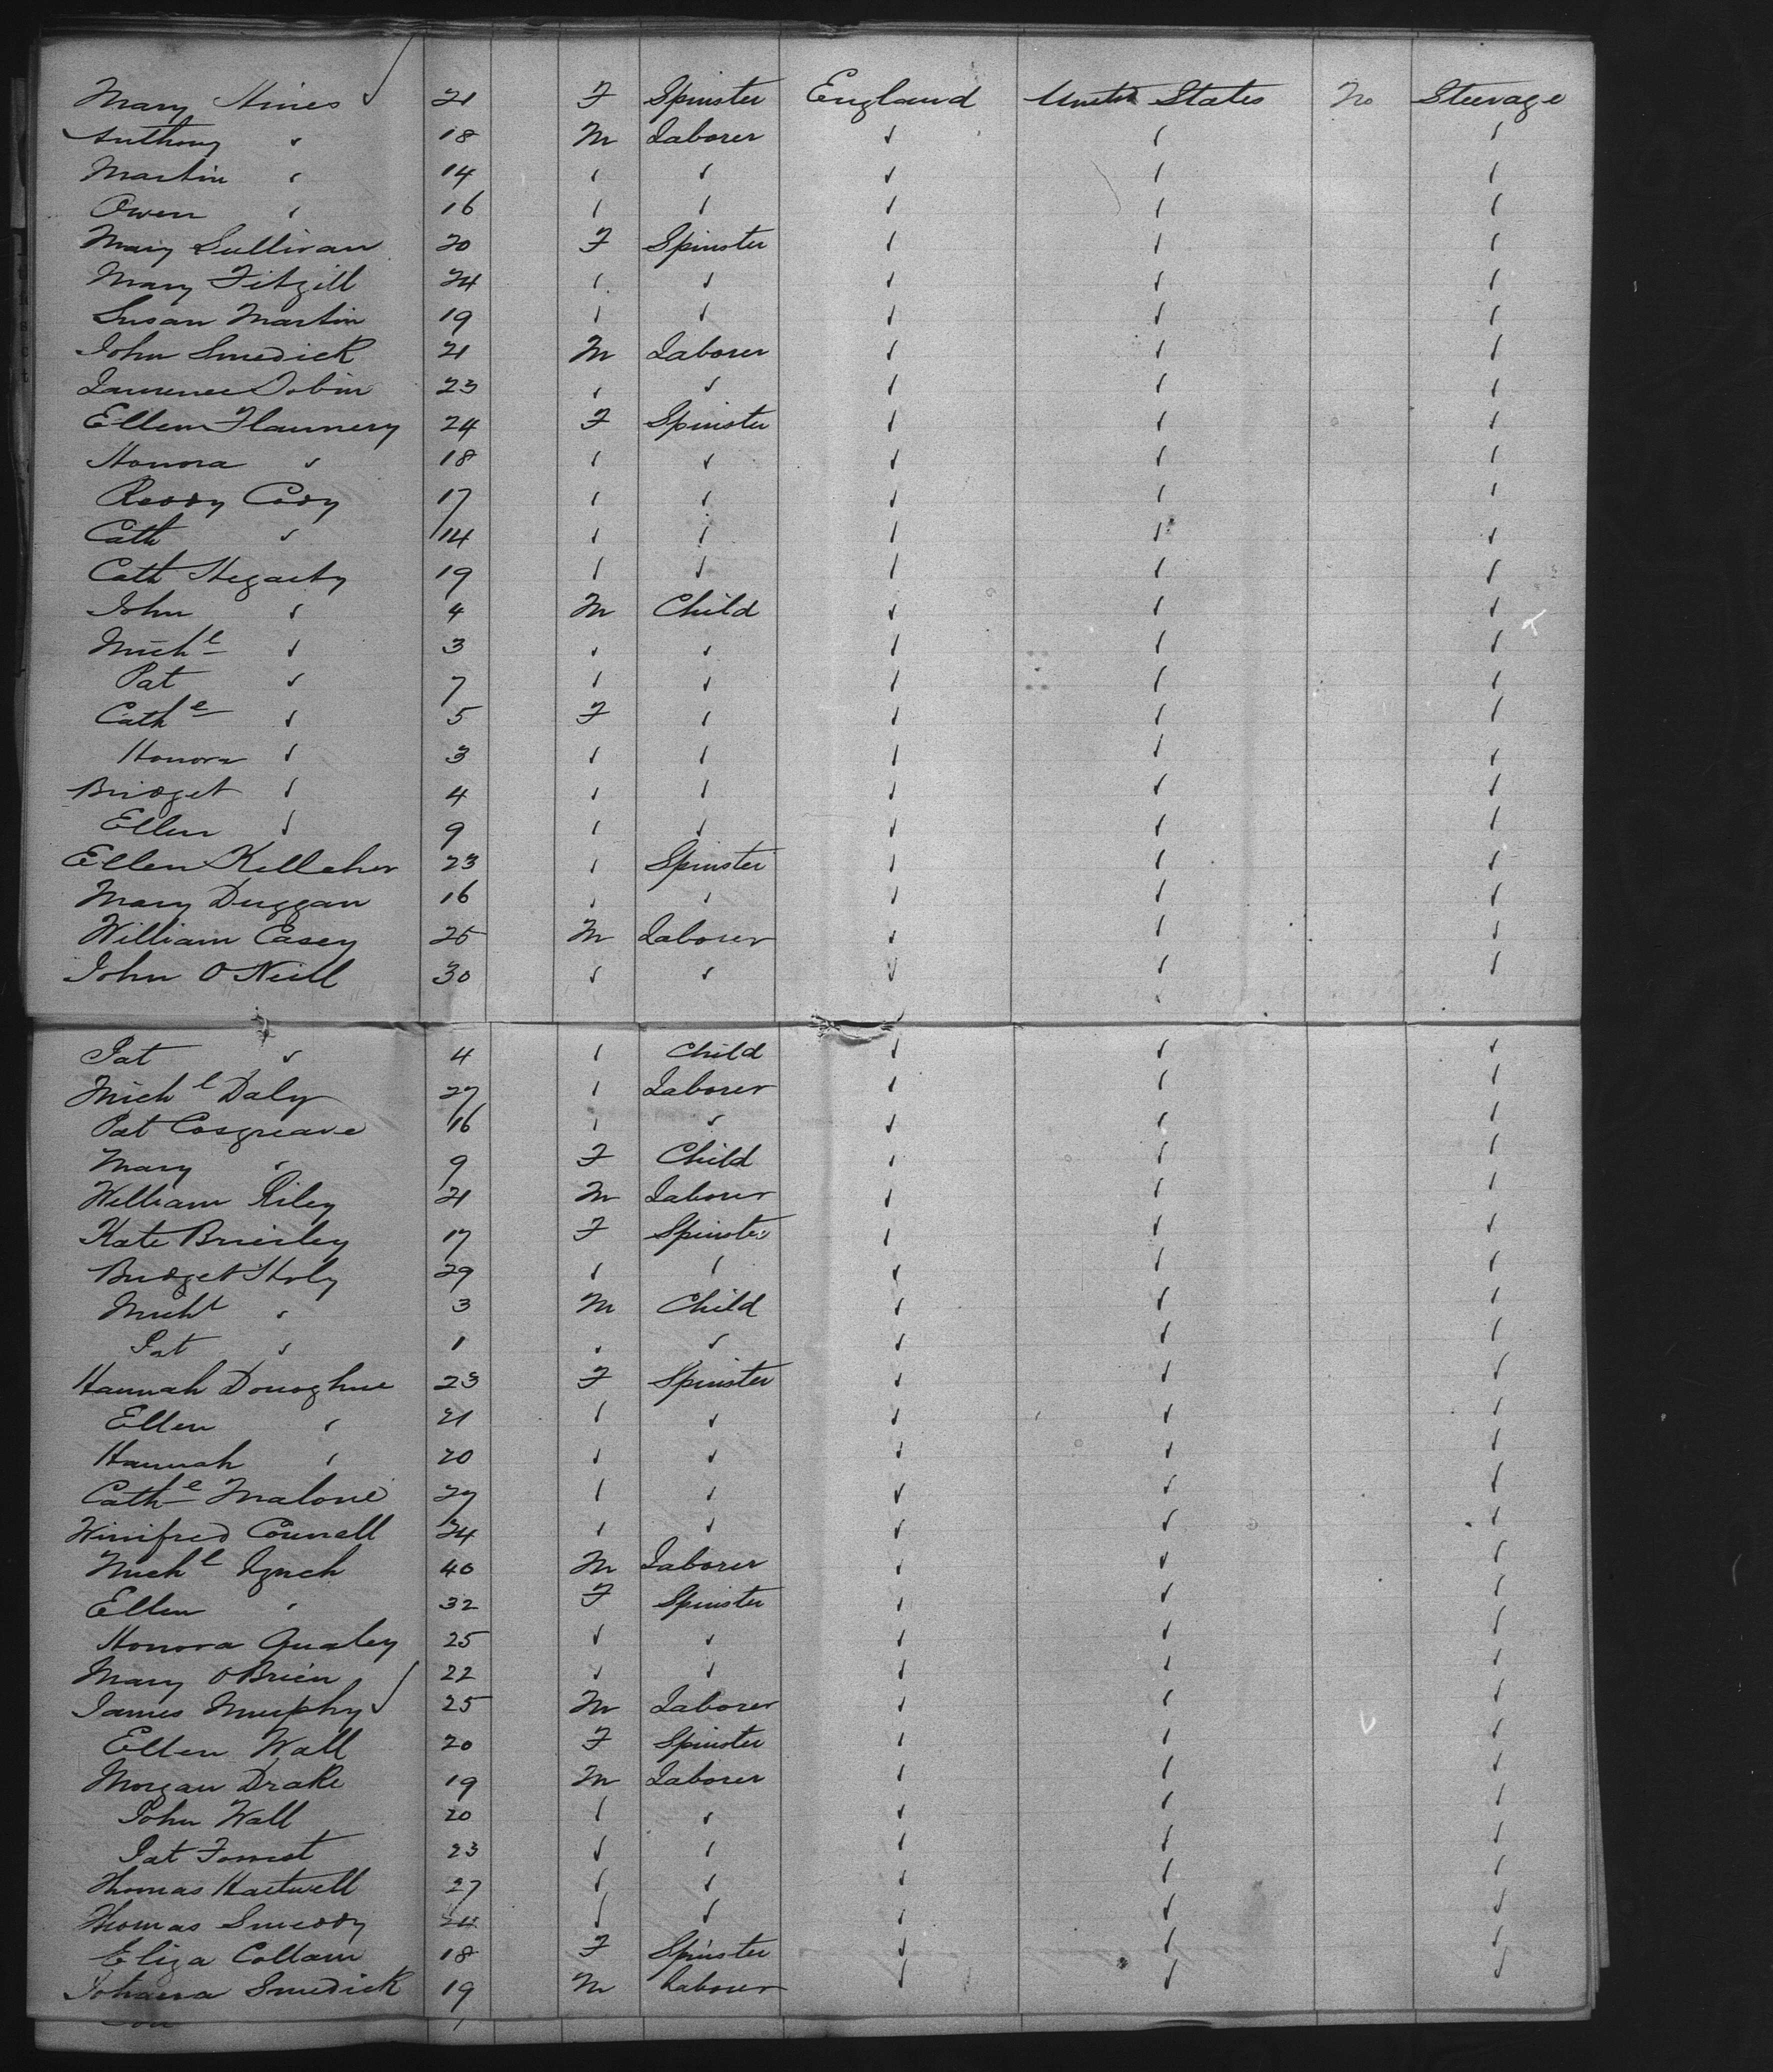 Mary Hines 21 F Spinster England United States No Steerage
Anthony " 18 M Laborer " " "
Martin " 14 " " " " "
Owen " 16 " " " " "
Mary Sullivan 20 F Spinster " " "
Mary Fitzgill 24 " " " " "
Susan Martin 19 " " " " "
John Smedick 21 M Laborer " " "
Laurence Tobin 23 " " " " "
Ellen Flannery 24 F Spinster " " "
Honora " 18 " " " " "
Cody 17 " " " " "
Cath " 14 " " " " "
Cath Hegarty 19 " " " " "
John " 4 M Child " " "
Michl " 3 " " " " "
Pat " 7 " " " " "
Cathe " 5 F " " " "
Honora " 3 " " " " "
Bridget " 4 " " " " "
Ellen " 9 " " " " "
Ellen Kelleher 23 " Spinster " " "
Mary Duggan 16 " " " " "
William Casey 25 M Laborer " " "
John O'Neill 30 " " " " "
Pat " 4 " Child " " "
Michl Daly 27 " Laborer " " "
Pat Cosgreave 16 " " " " "
Mary " 9 F Child " " "
William Riley 21 M Laborer " " "
Kate Brierley 17 F Spinster " " "
Bridget Holy 29 " " " " "
Michl " 3 M Child " " "
Pat " 1 " " " " "
Hannah Donoghue 23 F Spinster " " "
Ellen " 21 " " " " "
Hannah " 20 " " " " "
Cathe Malone 27 " " " " "
Winifred Connell 24 " " " " "
Michl Lynch 40 M Laborer " " "
Ellen " 32 F Spinster " " "
Honora Qualey 25 " " " " "
Mary O'Brien 22 " " " " "
James Murphy 25 M Laborer " " "
Ellen Wall 20 F Spinster " " "
Morgan Drake 19 M Laborer " " "
John Wall 20 " " " " "
Pat Forrest 23 " " " " "
Thomas Hartwell 27 " " " " "
Thomas Smeddy 24 " " " " "
Eliza Collam 18 F Spinster " " "
Johanna Smedick 19 M Laborer " " "